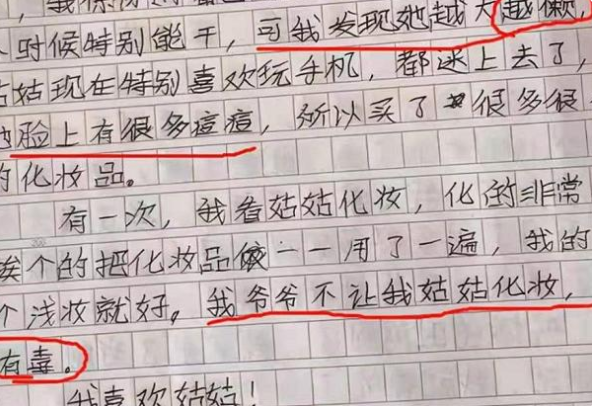 时候特别能干，可我发现她越大越懒，
姑姑现在特别喜欢玩手机，都迷上去了，
脸上有很多痘痘，所以买了很多很
的化妆品。
有一次，我看姑姑化妆，化的非常
挨个的把化妆品一一用了一遍，我的
个浅妆就好。我爷爷不让我姑姑化妆，
有毒。
我喜欢姑姑！